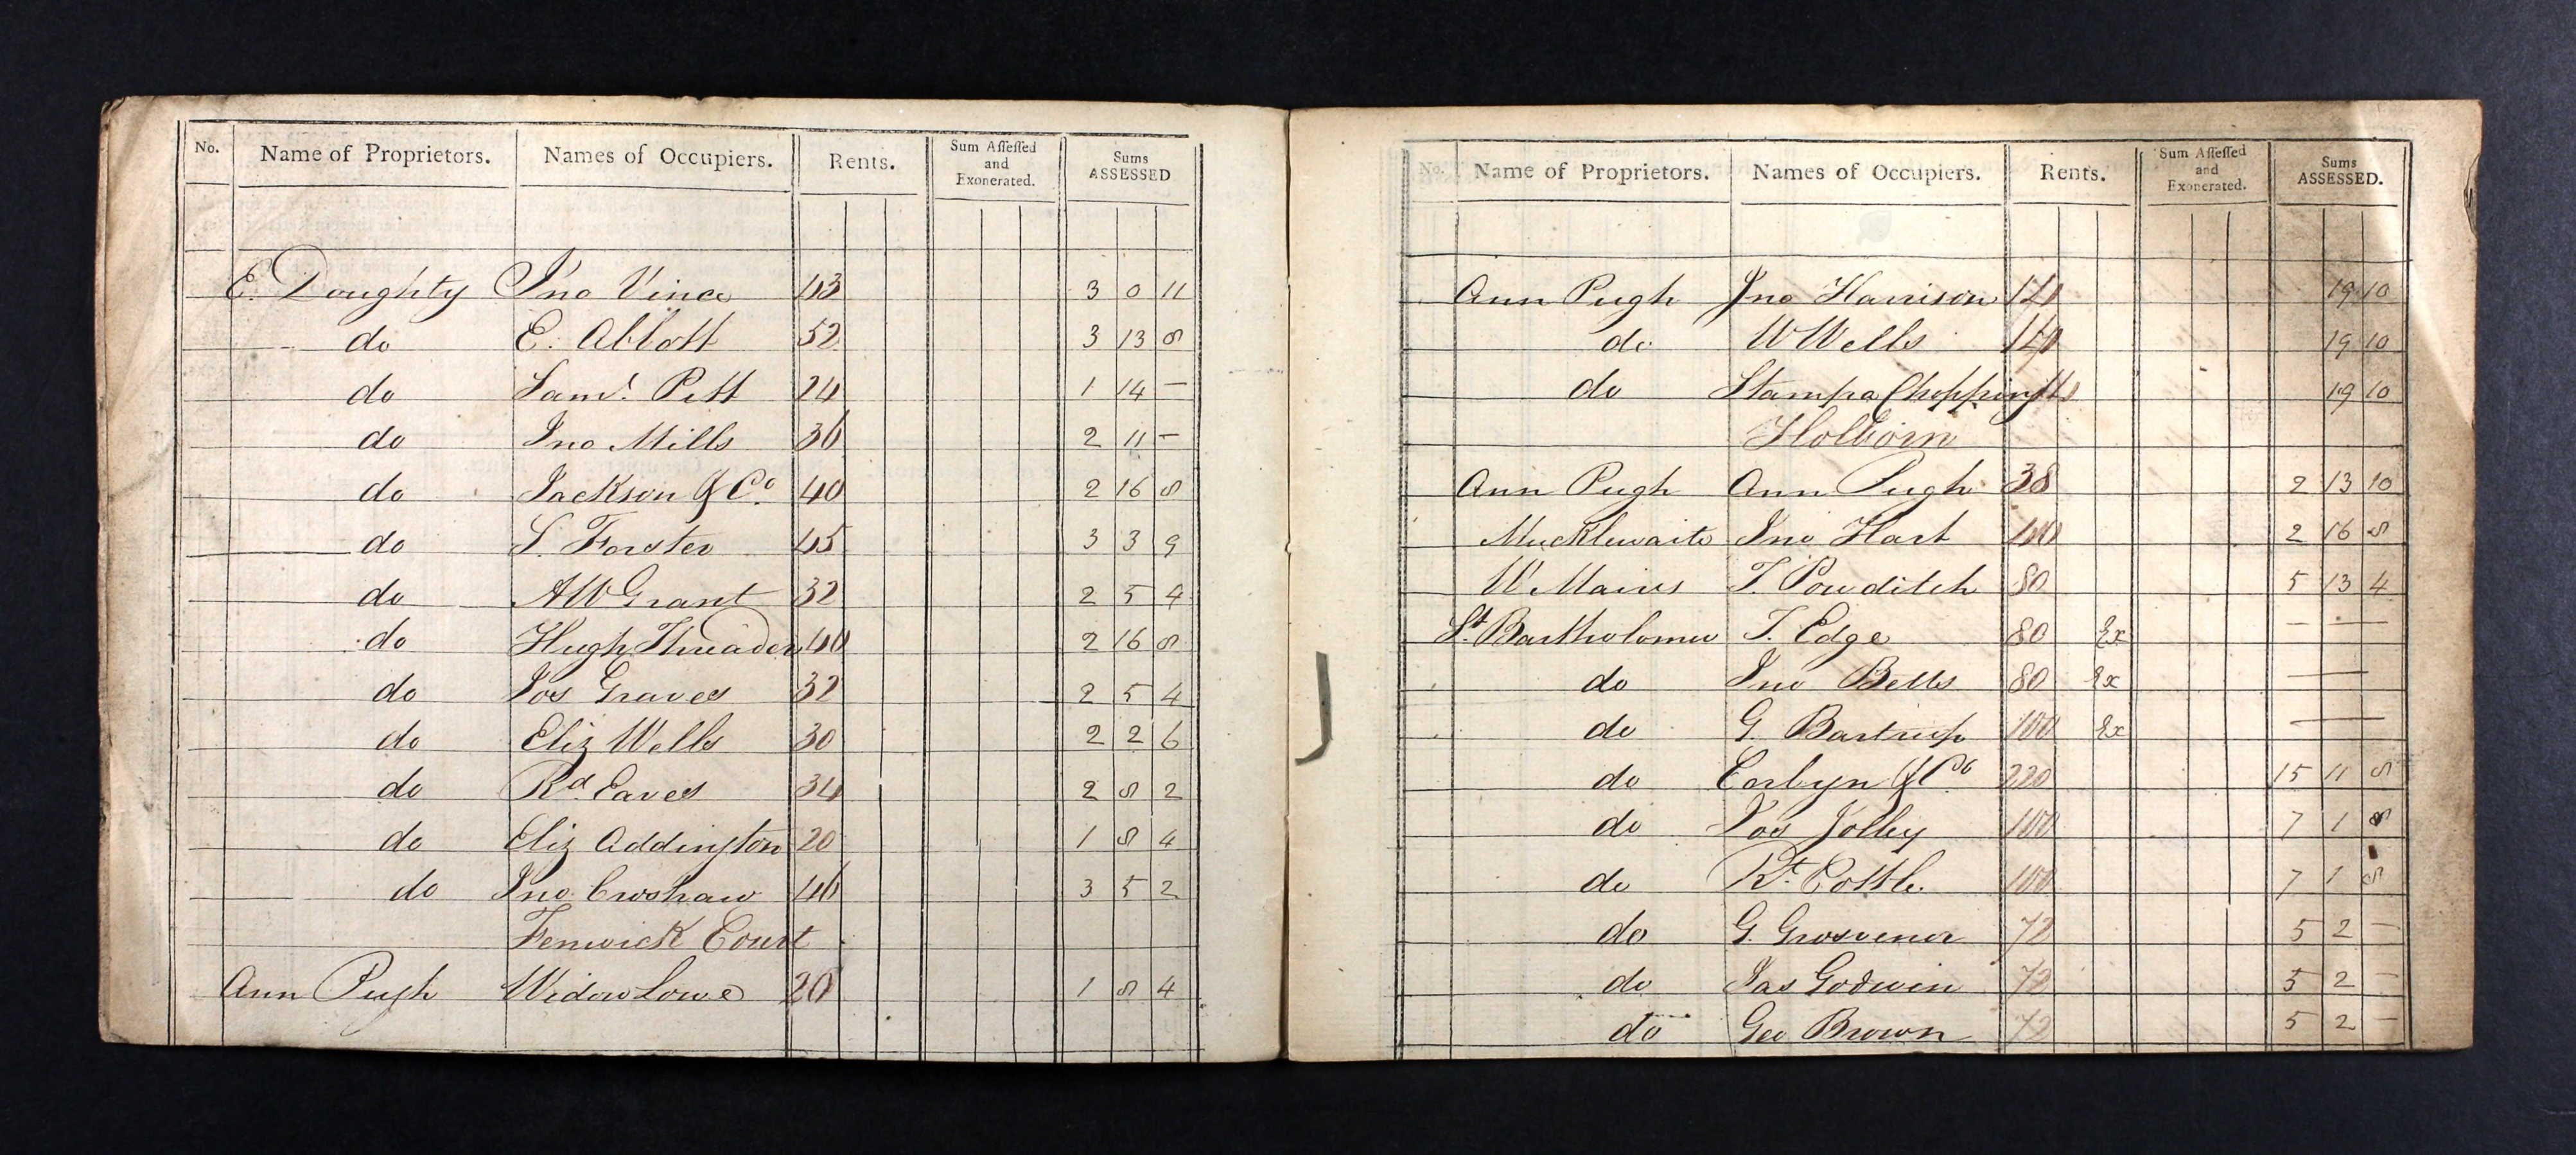 No. Name of Proprietors. Names of Occupiers. Rents. Sum Aſſeſſed and Exonerated. Sums ASSESSED
E. Doughty Jno Vince 43 3 0 11
do E. Abbott 52 3 13 8
do Saml. Pitt 24 1 14 —
do Jno Mills 36 2 11 —
do Jackson & Co. 40 2 16 8
do S. Forster 45 3 3 9
do AW Grant 32 2 5 4
do Hugh Threader 40 2 16 8
do Jos Graves 32 2 5 4
do Eliz Wells 30 2 2 6
do Rd. Eaves 34 2 8 2
do Eliz Addington 20 1 8 4
do Jno Croshaw 46 3 5 2
Fenwick Court
Ann Pugh Widow Lowe 20 1 8 4
No. Name of Proprietors. Names of Occupiers. Rents. Sum Aſſeſſed and Exonerated. Sums ASSESSED.
Ann Pugh Jno Harrison 14 19 10
do W Wells 14 19 10
do Stampa Chopping 14 19 10
Holborn
Ann Pugh Ann Pugh 38 2 13 10
Mucklewaite Jno Hart 40 2 16 8
W Mairs T. Powditch 80 5 13 4
St. Bartholomew T. Edge 80 Ex — —
do Jno Bells 80 Ex —
do G. Bartrup 100 Ex —
do Corbyn & Co. 220 15 11 8
do Jos Jolley 100 7 1 8
do Rt. Cottle. 100 7 1 8
do G. Grosvenor 72 5 2 —
do Jas Godwin 72 5 2 —
do Geo Brown 72 5 2 —